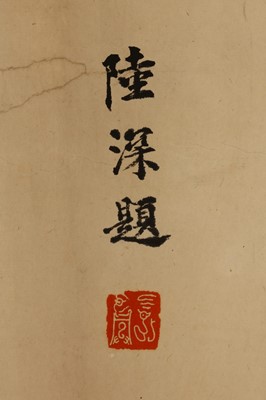 陸深題